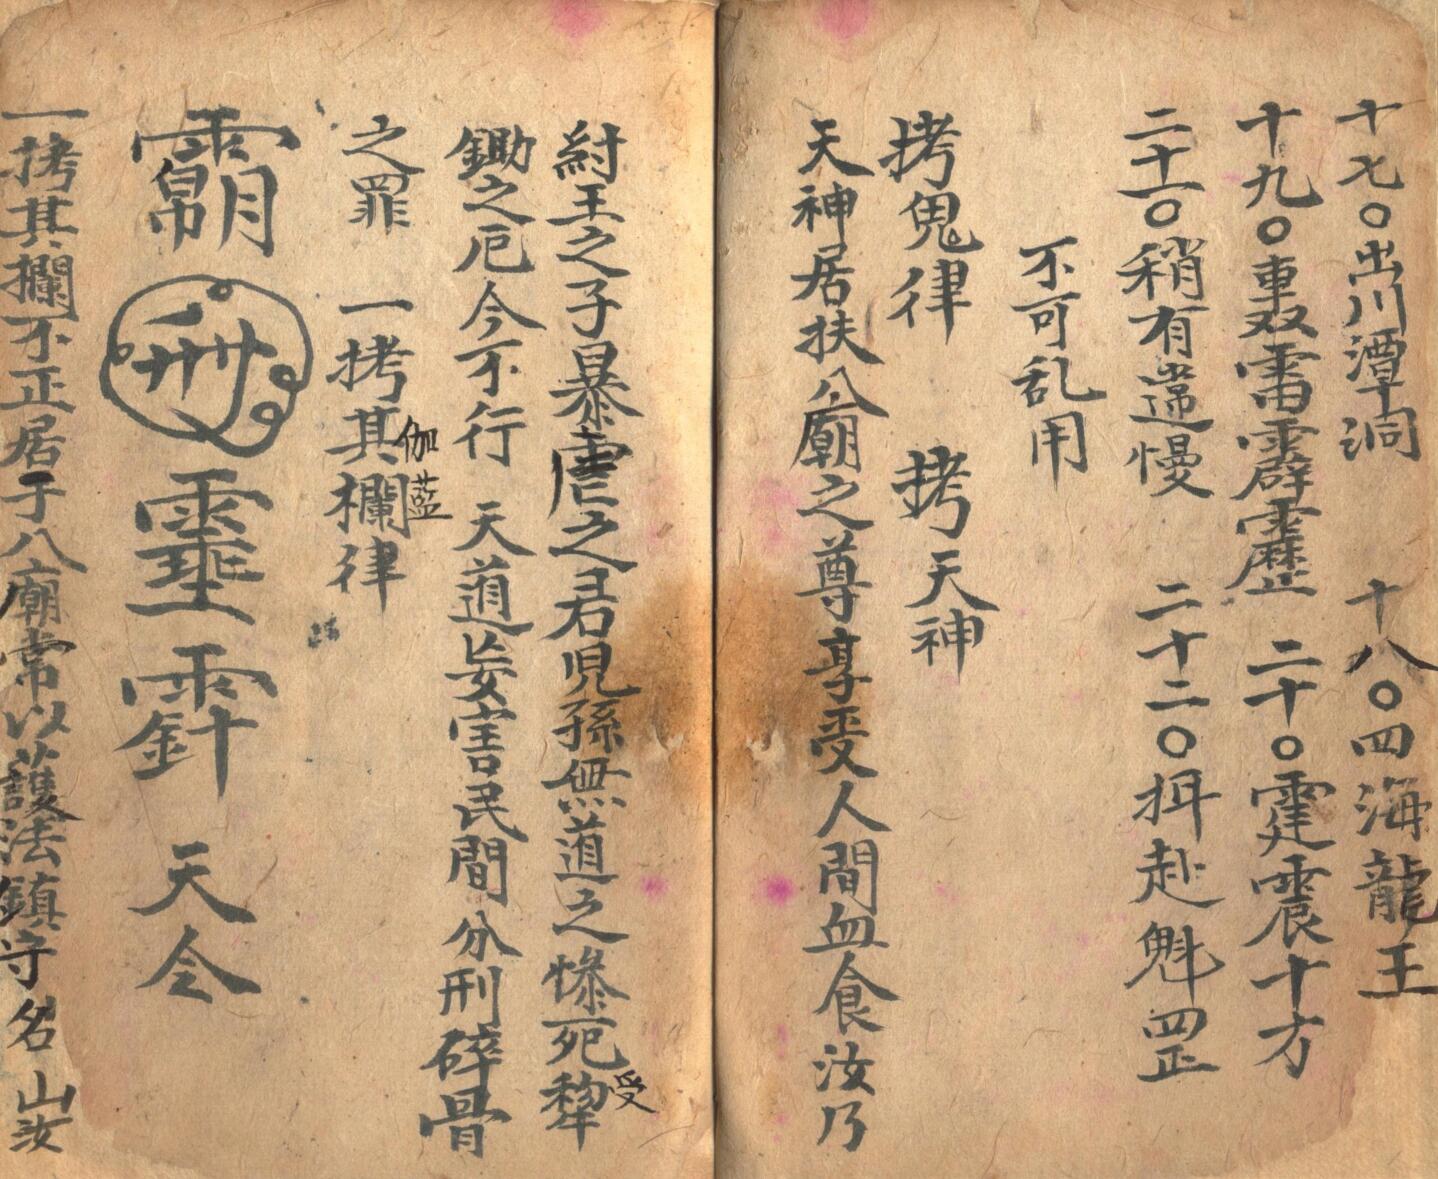 十七〇出川潭洞　十八〇四海龍王
十九〇車双雷霹靂　二十〇霆震十方
二十一〇稍有遆慢　二十二〇揖赴魁罡
不可乱用
拷鬼律　拷天神
天神居扶八廟之尊享受人間血食汝乃
紂王之子暴虐之君児孫無道之慘死受犂
鋤之厄今不行　天道妄害民間分刑碎骨
之罪　一拷其欄律
伽藍
天令
一拷其欄不正居于八廟常以護法鎮守名山汝